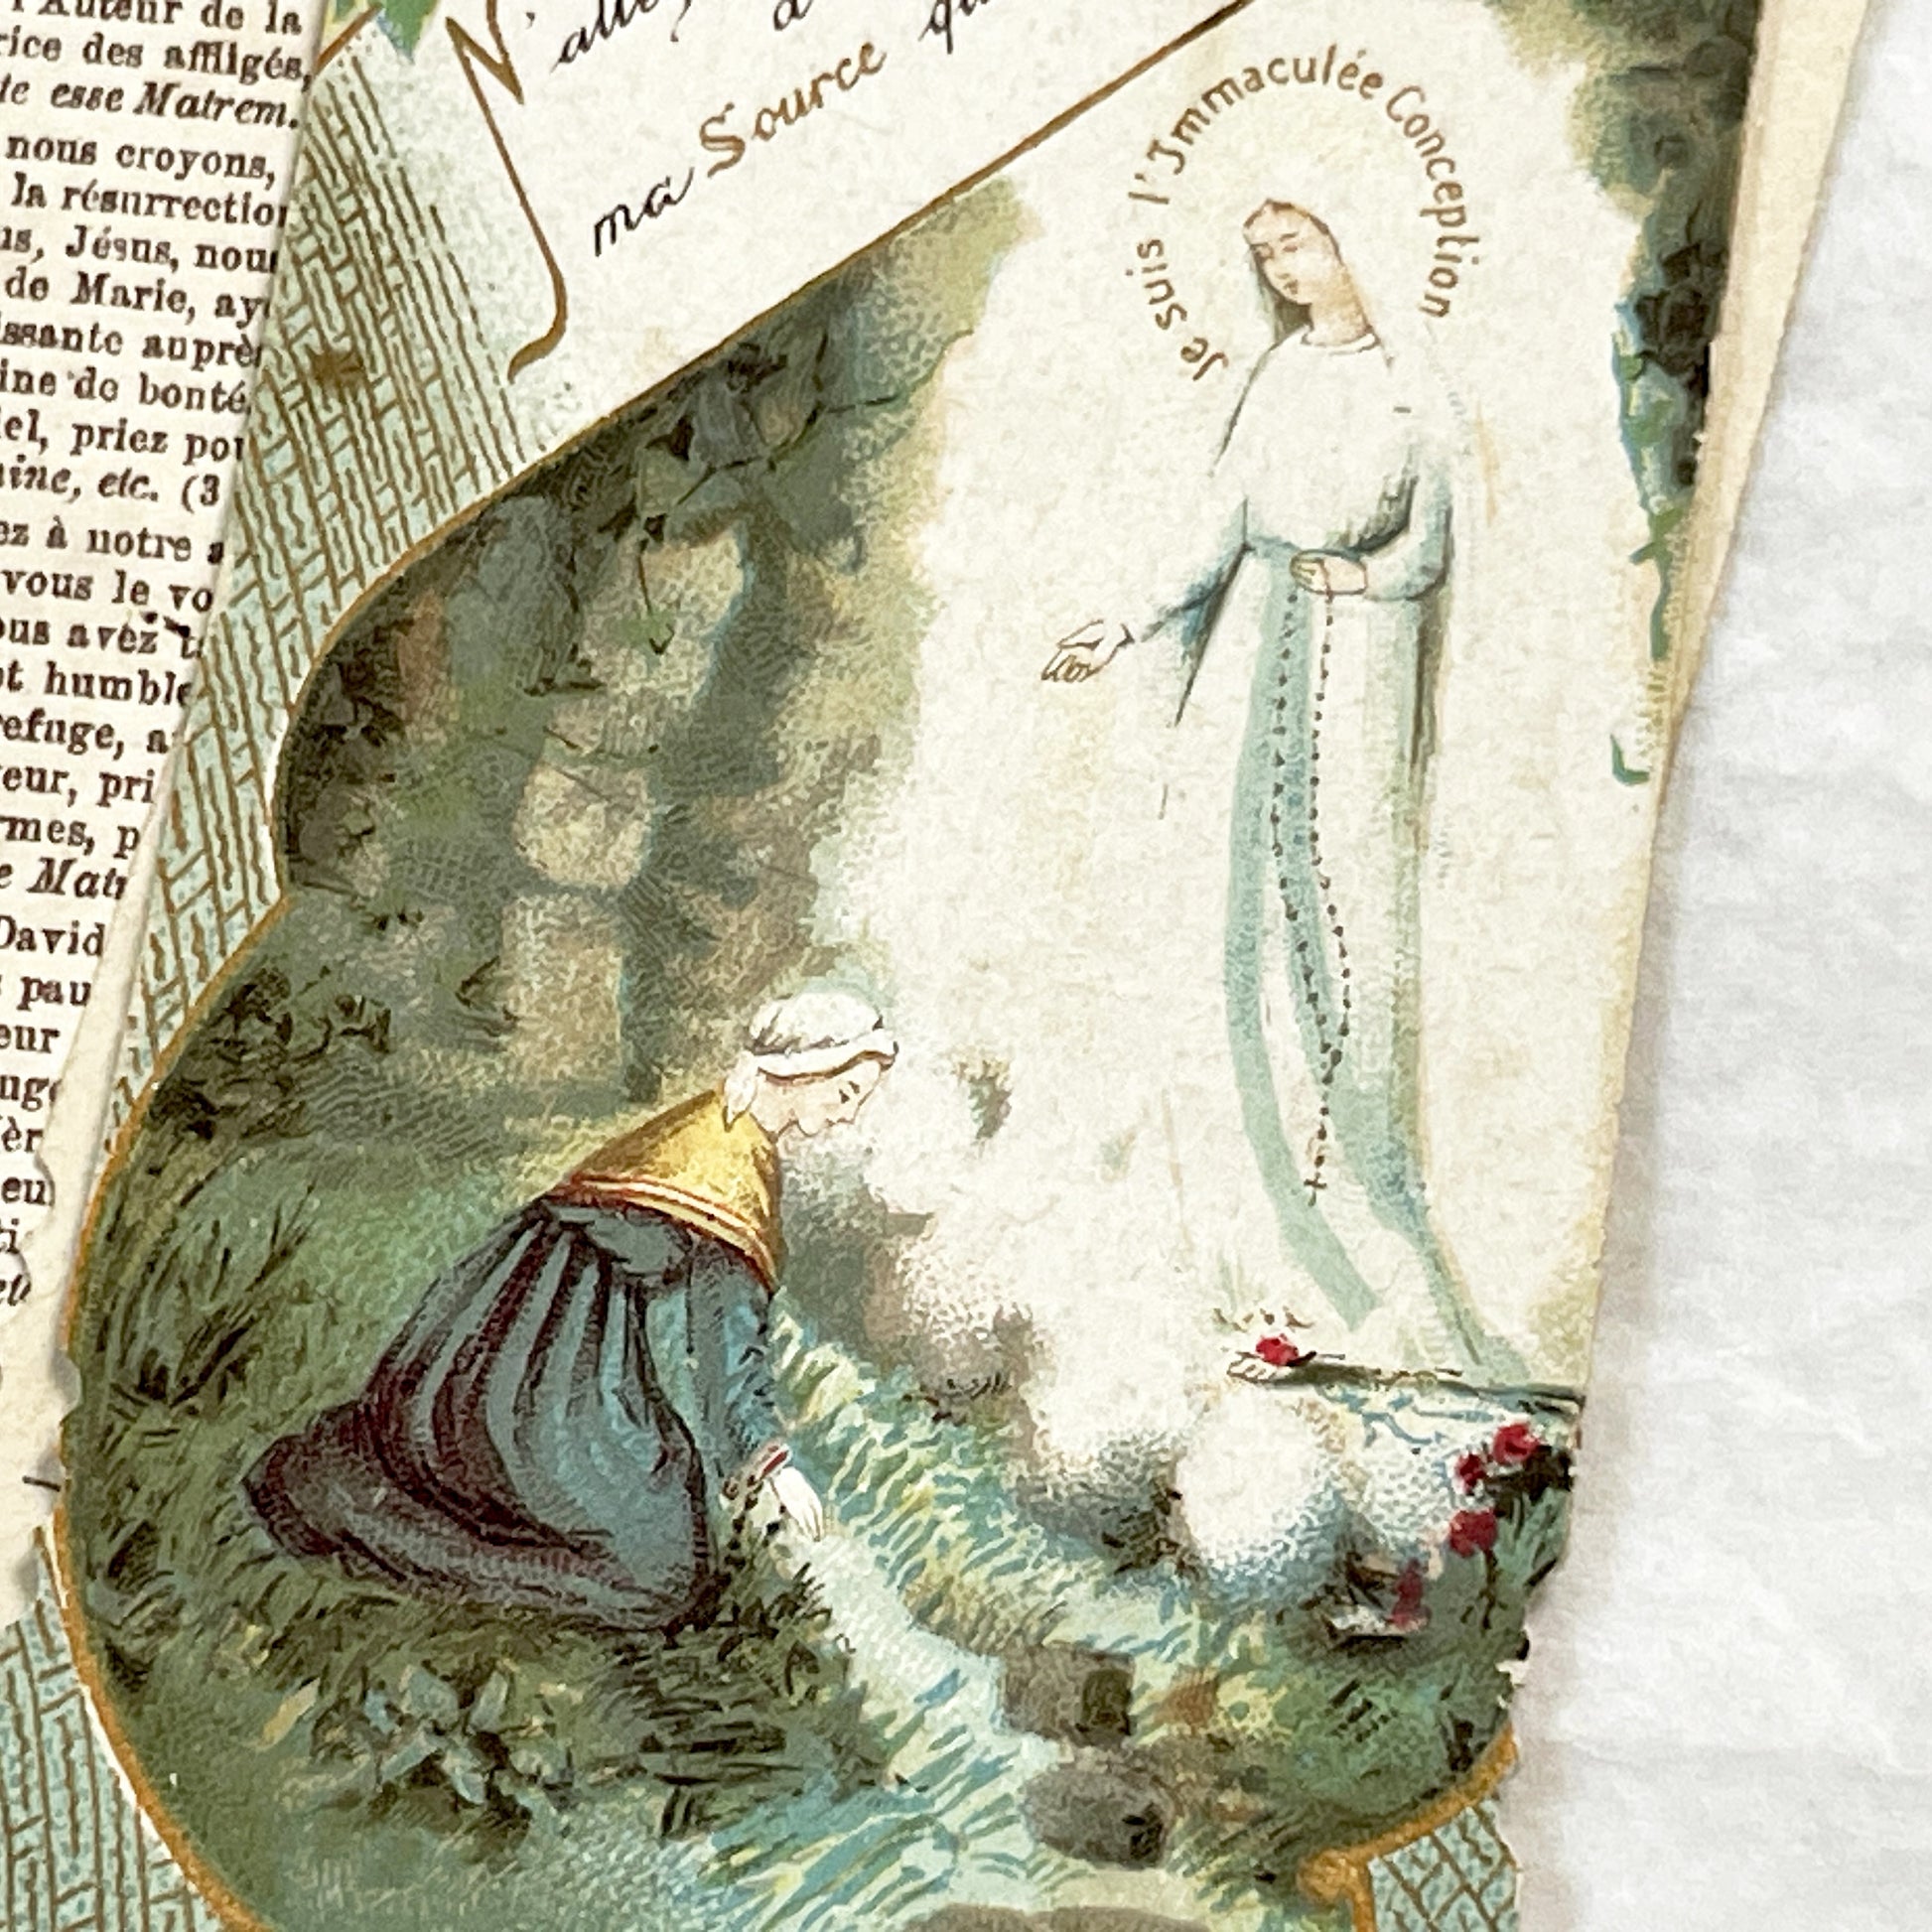 l'Auteur de la
rice des affligés,
te esse Matrem.
nous croyons,
la résurrection
us, Jésus, nous
de Marie, ay
issante auprès
ine de bonté
iel, priez pou
aine, etc. (3
ez à notre a
vous le vo
ous avez t
et humble
refuge, a
eur, pri
rmes, p
e Mat
David
pau
eur
uge
èr
eu
N'allez
à
ma Source
Je suis l'Immaculée Conception